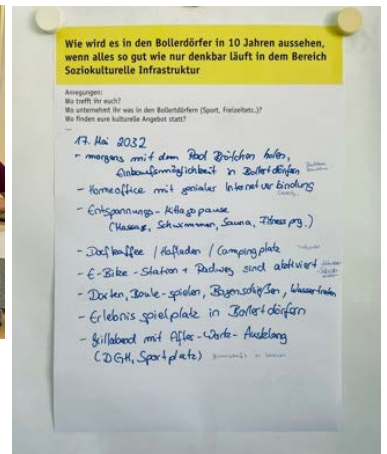 Wie wird es in den Bollerdörfer in 10 Jahren aussehen,
wenn alles so gut wie nur denkbar läuft in dem Bereich
Soziokulturelle Infrastruktur
Anregungen:
Wo trefft ihr euch?
Wo unternehmt ihr was in den Bollertdörfern (Sport, Freizeitetc.)?
Wo finden eure kulturelle Angebot statt?
...
17. Mai 2032
- morgens mit dem Rad Brötchen holen,
Einkaufsmöglichkeit in Bollertdörfern
- Homeoffice mit genialer Internetverbindung
- Entspannungs-Mittagspause
(Massage, Schwimmen, Sauna, Fitnessprg.)
- Dorfkaffee / Hofladen / Campingplatz
- E-Bike-Station + Radweg sind aktiviert
- Darten, Boule-spielen, Bogenschießen, Wassertreten
- Erlebnisspielplatz in Bollertdörfern
- Grillabend mit After-Work-Ausklang
(DGH, Sportplatz)